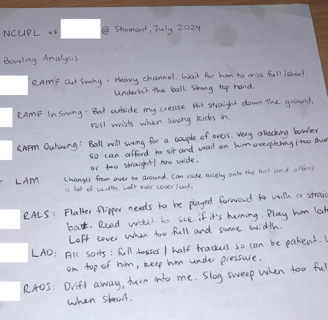 NCUPL vs @ Stamont, July 2024
Bowling Analysis
RAMF Out Swing - Heavy channel. Wait for him to miss full/short.
Underhit the ball. Strong top hand.
RAMF In Swing: Bat outside my crease. Hit straight down the ground,
roll wrists when swing kicks in.
RAFM Outswing: Ball will swing for a couple of overs. Very attacking bowler
so can afford to sit and wait on him overpitching/too short
or too straight/too wide.
LAM Changes from over to around. Can slide nicely onto the bat and offers
a lot of width. Loft over cover/
RALS: Flatter flipper needs to be played forward to with a straight
bat. Read wrist to see if it's turning. Play him late
Loft cover when too full and some width.
LAO: All sorts: full tosses / half trackers so can be patient.
on top of him, keep him under pressure.
RAOS: Drift away, turn into me. Slog sweep when too full
when short.